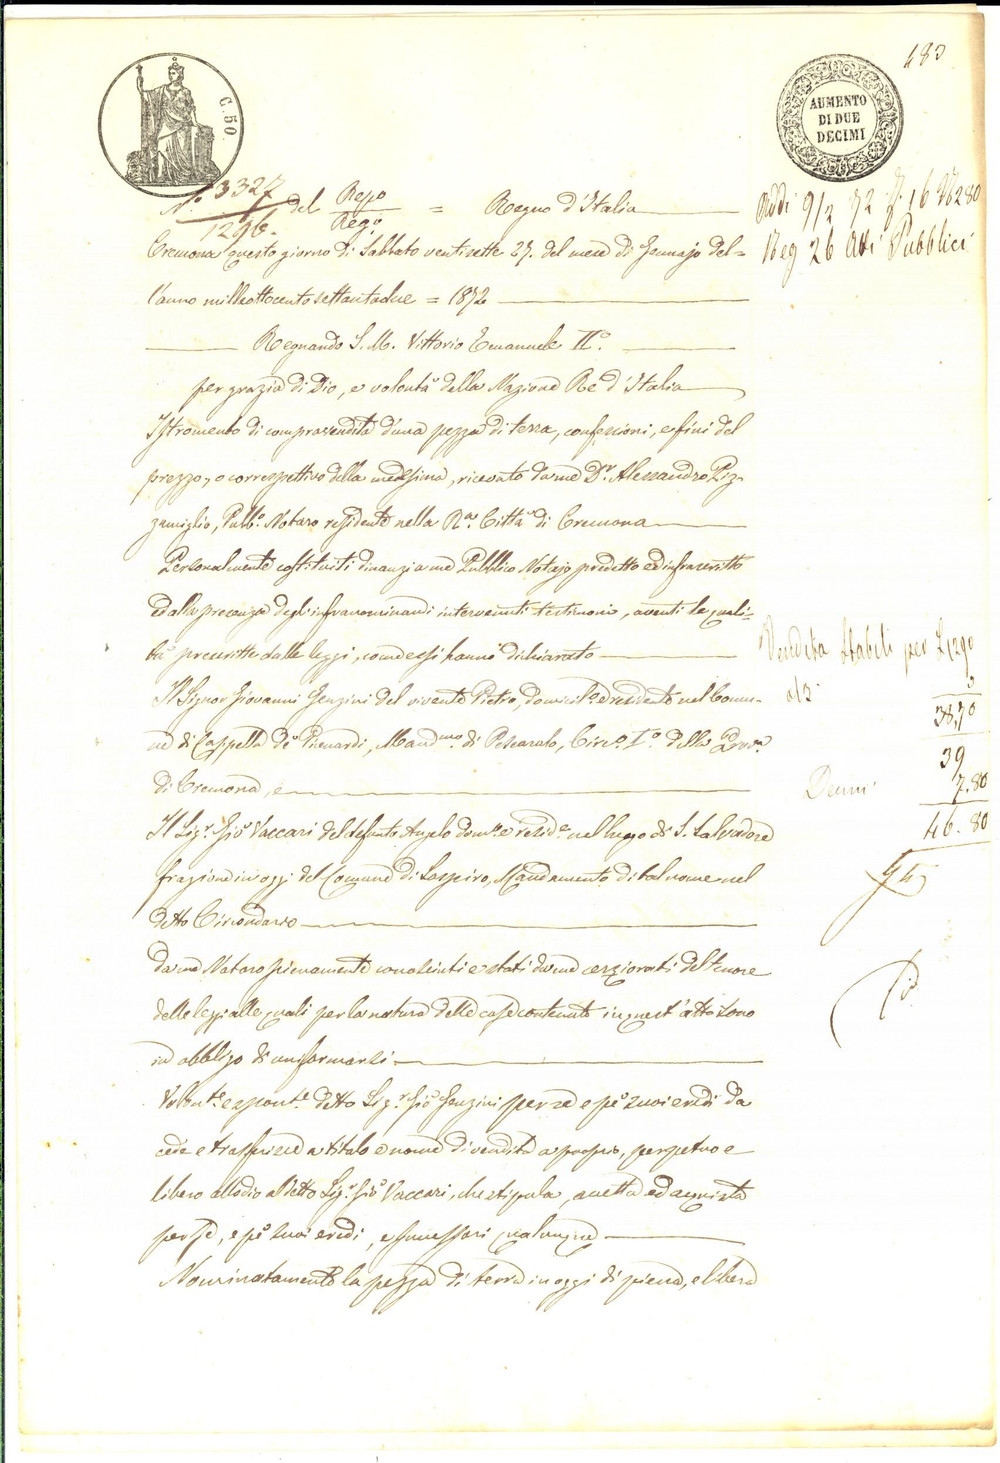 483
C. 50
AUMENTO
DI DUE
DECIMI
N.° 3327 / 1296. del Rep.o / Reg.o = Regno d'Italia
Addi 9/2 72
Reg 26 Atti Pubblici
Cremona questo giorno di Sabbato ventisette 27. del mese di Gennajo del=
l'anno milleottocentosettantadue = 1872
Regnando S. M. Vittorio Emanuele II.°
per grazia di Dio, e volontà della Nazione Re d'Italia
Istromento di compravendita d'una pezza di terra, confessioni, e fini del
prezzo, o correspettivo della medesima, ricevuto da me D.r Alessandro Piz-
zamiglio, Pubb.o Notaro residente nella R.a Città di Cremona
Personalmente costituiti dinanzi a me Pubblico Notajo predetto ed infrascritto
ed alla presenza degli infranominandi intervenuti testimonj, aventi le quali-
tà prescritte dalle leggi, com'essi hanno dichiarato
Vendita Stabili per £ 1290
3
38,70
39
Decimi 7.80
46.80
Il Signor Giovanni Genzini del vivente Pietro, domicil.o e residente nel Comu-
ne di Cappella de' Picenardi, Mand.mo di Pescarolo, Circ.o I.o della Prov.a
di Cremona, e
Il Sig.r Gio Vaccari del defunto Angelo dom.o e resid.e nel luogo di S. Salvadore
frazione in oggi del Comune di Sospiro, Mandamento di tal nome nel
detto Circondario
da me Notaro pienamente conosciuti e stati da me cerziorati del tenore
delle leggi alle quali per la natura delle cose contenute in quest'atto sono
in obbligo di uniformarsi
Volont.e e spont.e detto Sig.r Gio Genzini per se e p.r suoi eredi da
cede e trasferisce a titolo e nome di vendita a proprio, perpetuo e
libero allodio al detto Sig.r Gio Vaccari, che stipula, accetta ed acquista
per se, e p.r suoi eredi, e successori qualunque
Nominatamente la pezza di terra in oggi di piena, e libera